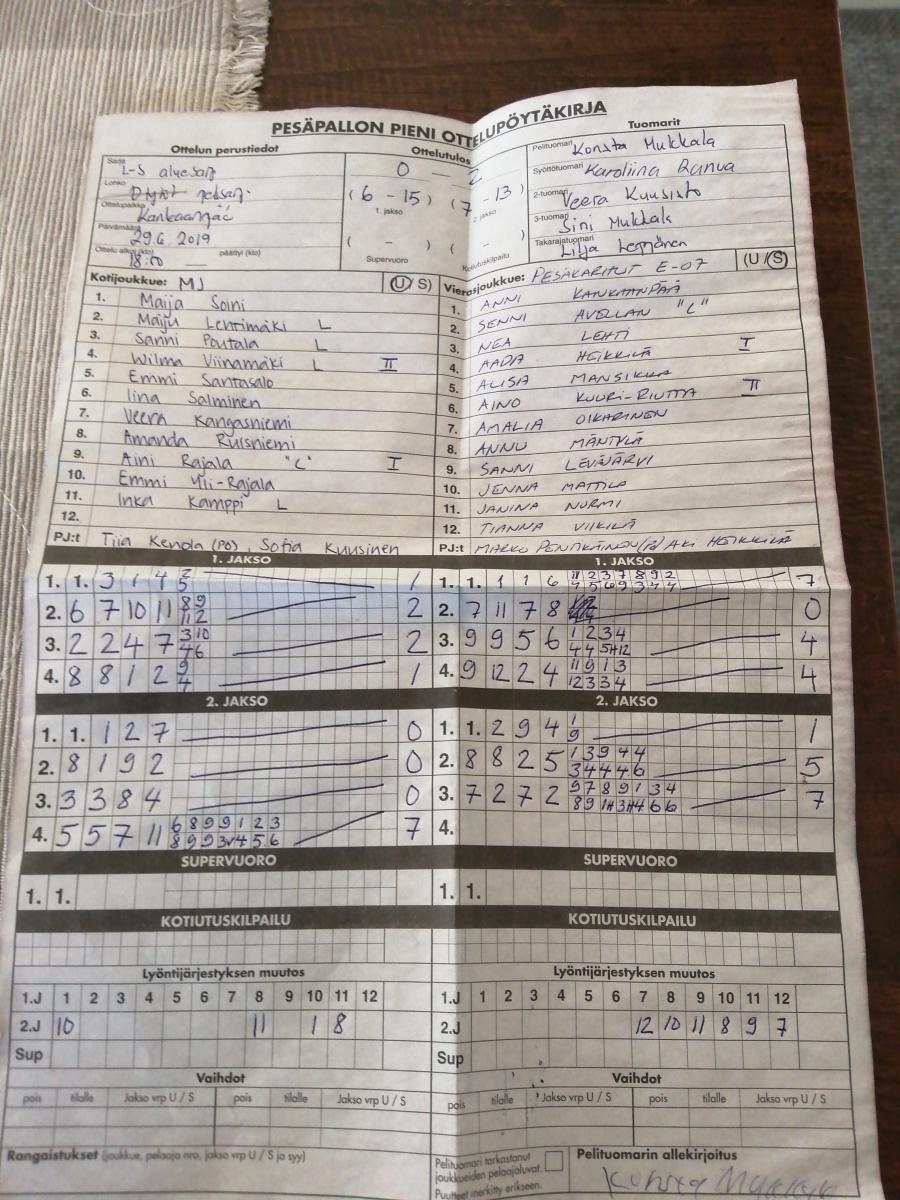 PESÄPALLON PIENI OTTELUPÖYTÄKIRJA
Ottelun perustiedot
Sarja L-S aluesarj
Lohko
Ottelupaikka Kankaanpää
Päivämäärä 29.6.2019
Ottelu alkoi (klo) 18:00 päättyi (klo)
Ottelutulos
0 – 2
(6 – 15) (7 – 13)
1. jakso 2. jakso
( – ) ( – )
Supervuoro Kotiutuskilpailu
Tuomarit
Pelituomari Konsta Mukkala
Syöttötuomari Karoliina Ranua
2-tuomari Veera Kuusisto
3-tuomari Sini Mukkala
Takarajatuomari Lilja Leppänen
Kotijoukkue: MJ (U/S)
1. Maija Soini
2. Maiju Lehtimäki L
3. Sanni Poutala L
4. Wilma Viinamäki L II
5. Emmi Santasalo
6. Iina Salminen
7. Veera Kangasniemi
8. Amanda Ruisniemi
9. Aini Rajala "C" I
10. Emmi Yli-Rajala
11. Inka Kamppi L
12.
PJ:t Tiia Kenola (PO) Sofia Kuusinen
Vierasjoukkue: PESÄKARHUT E-07 (U/S)
1. ANNI KANKAANPÄÄ
2. SENNI AVELLAN "C"
3. NEA LEHTI
4. AADA HEIKKILÄ I
5. ALISA MANSIKKA
6. AINO KUURI-RIUTTA II
7. AMALIA OIKARINEN
8. ANNU MÄNTYLÄ
9. SANNI LEVÄJÄRVI
10. JENNA MATTILA
11. JANINA NURMI
12. TIANNA VIIKILÄ
PJ:t MARKO PENTTINEN (PJ) AKI HEIKKILÄ
1. JAKSO
1. 1. 3 1 4 2 5 1
2. 6 7 10 11 8 9 11 2 2
3. 2 2 4 7 3 10 4 6 2
4. 8 8 1 2 9 4 1
1. JAKSO
1. 1. 1 1 6 11 2 3 7 8 9 2 7
2. 7 11 7 8 0
3. 9 9 5 6 1 2 3 4 4 4 5 12 4
4. 9 12 2 4 11 9 1 3 12 3 3 4 4
2. JAKSO
1. 1. 1 2 7 0
2. 8 1 9 2 0
3. 3 3 8 4 0
4. 5 5 7 11 6 8 9 9 1 2 3 8 9 9 3 4 5 6 7
2. JAKSO
1. 1. 2 9 4 1 9 1
2. 8 8 2 5 1 3 9 4 4 3 4 4 4 6 5
3. 7 2 7 2 9 7 8 9 1 3 4 7
4.
SUPERVUORO
1. 1.
SUPERVUORO
1. 1.
KOTIUTUSKILPAILU
KOTIUTUSKILPAILU
Lyöntijärjestyksen muutos
1.J 1 2 3 4 5 6 7 8 9 10 11 12
2.J 10 11 1 8
Sup
Lyöntijärjestyksen muutos
1.J 1 2 3 4 5 6 7 8 9 10 11 12
2.J 12 10 11 8 9 7
Sup
Vaihdot
pois tilalle Jakso vrp U / S pois tilalle Jakso vrp U / S
Vaihdot
pois tilalle Jakso vrp U / S pois tilalle Jakso vrp U / S
Rangaistukset (joukkue, pelaaja nro, jakso vrp U / S ja syy)
Pelituomari tarkastanut
joukkueiden pelaajaluvat.
Puutteet merkitty erikseen.
Pelituomarin allekirjoitus
Konsta Mukkala